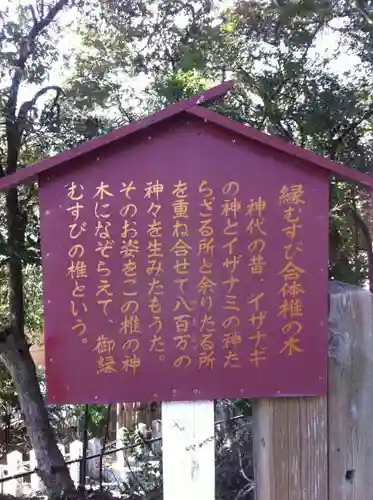 縁むすび合体椎の木
神代の昔．イザナギ
の神とイザナミの神た
らざる所と余りたる所
を重ね合せて八百万の
神々を生みたもうた。
そのお姿をこの椎の神
木になぞらえて、御縁
むすびの椎という。